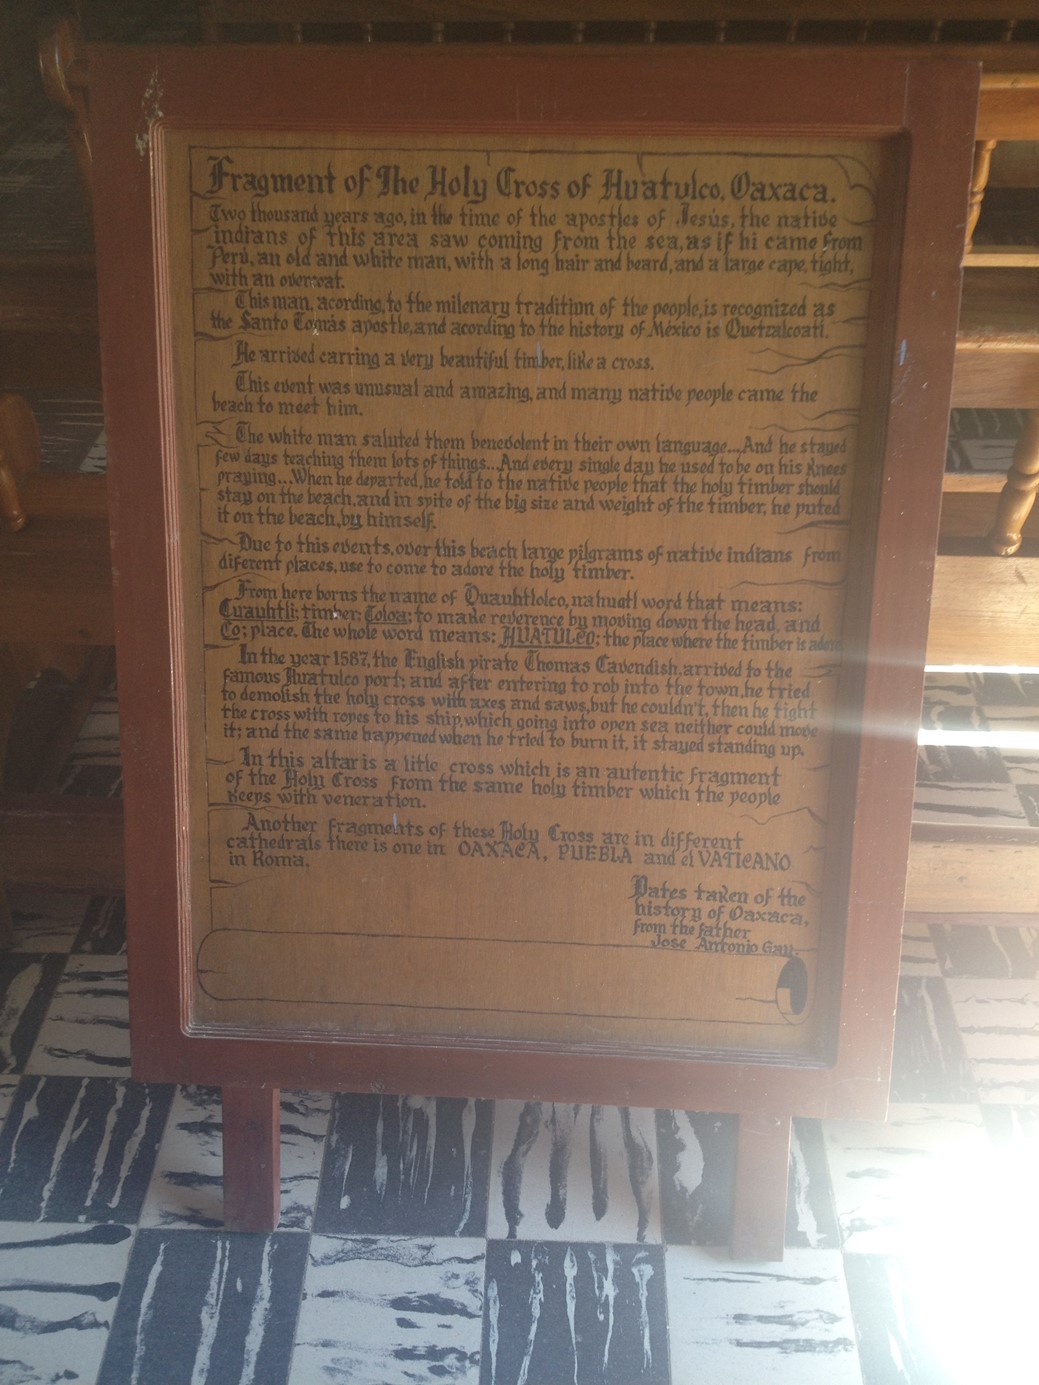 Fragment of The Holy Cross of Huatulco, Oaxaca.
Two thousand years ago, in the time of the apostles of Jesús, the native
indians of this area saw coming from the sea, as if hi came from
Perú, an old and white man, with a long hair and beard, and a large cape, tight,
with an overcoat.
This man, acording, to the milenary tradition of the people, is recognized as
the Santo Tomás apostle, and acording to the history of México is Quetzalcoatl.
He arrived carring a very beautiful timber, like a cross.
This event was unusual and amazing, and many native people came the
beach to meet him.
The white man saluted them benevolent in their own language...And he stayed
few days teaching them lots of things...And every single day he used to be on his knees
praying...When he departed, he told to the native people that the holy timber should
stay on the beach, and in spite of the big size and weight of the timber, he puted
it on the beach, by himself.
Due to this events, over this beach large pilgrams of native indians from
diferent places, use to come to adore the holy timber.
From here borns the name of Quauhtlolco, nahuatl word that means:
Cuauhtli; timber; Toloa; to make reverence by moving down the head, and
Co; place. The whole word means: HUATULCO: the place where the timber is adored
In the year 1587, the English pirate Thomas Cavendish, arrived to the
famous Huatulco port; and after entering to rob into the town, he tried
to demolish the holy cross with axes and saws, but he couldn't, then he tight
the cross with ropes to his ship, which going into open sea neither could move
it; and the same bappened when he tried to burn it, it stayed standing up.
In this altar is a litle cross which is an autentic fragment
of the Holy Cross from the same holy timber which the people
keeps with veneration.
Another fragments of these Holy Cross are in different
cathedrals there is one in OAXACA, PUEBLA and el VATICANO
in Roma.
Dates taken of the
history of Oaxaca,
from the father
Jose Antonio Gay.